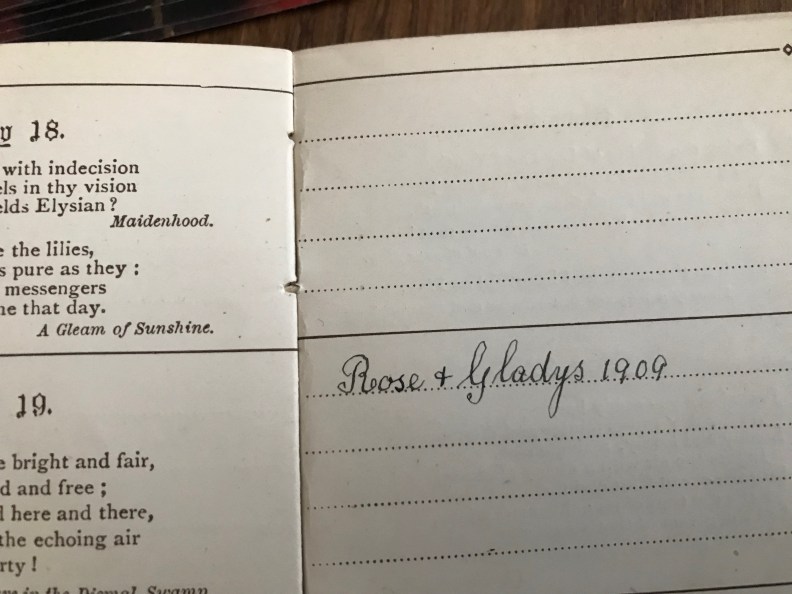 18.
with indecision
in thy vision
Elysian?
Maidenhood.
the lilies,
pure as they:
messengers
that day.
A Gleam of Sunshine.
19.
bright and fair,
and free;
here and there,
the echoing air
!
in the Dismal Swamp
Rose & Gladys 1909